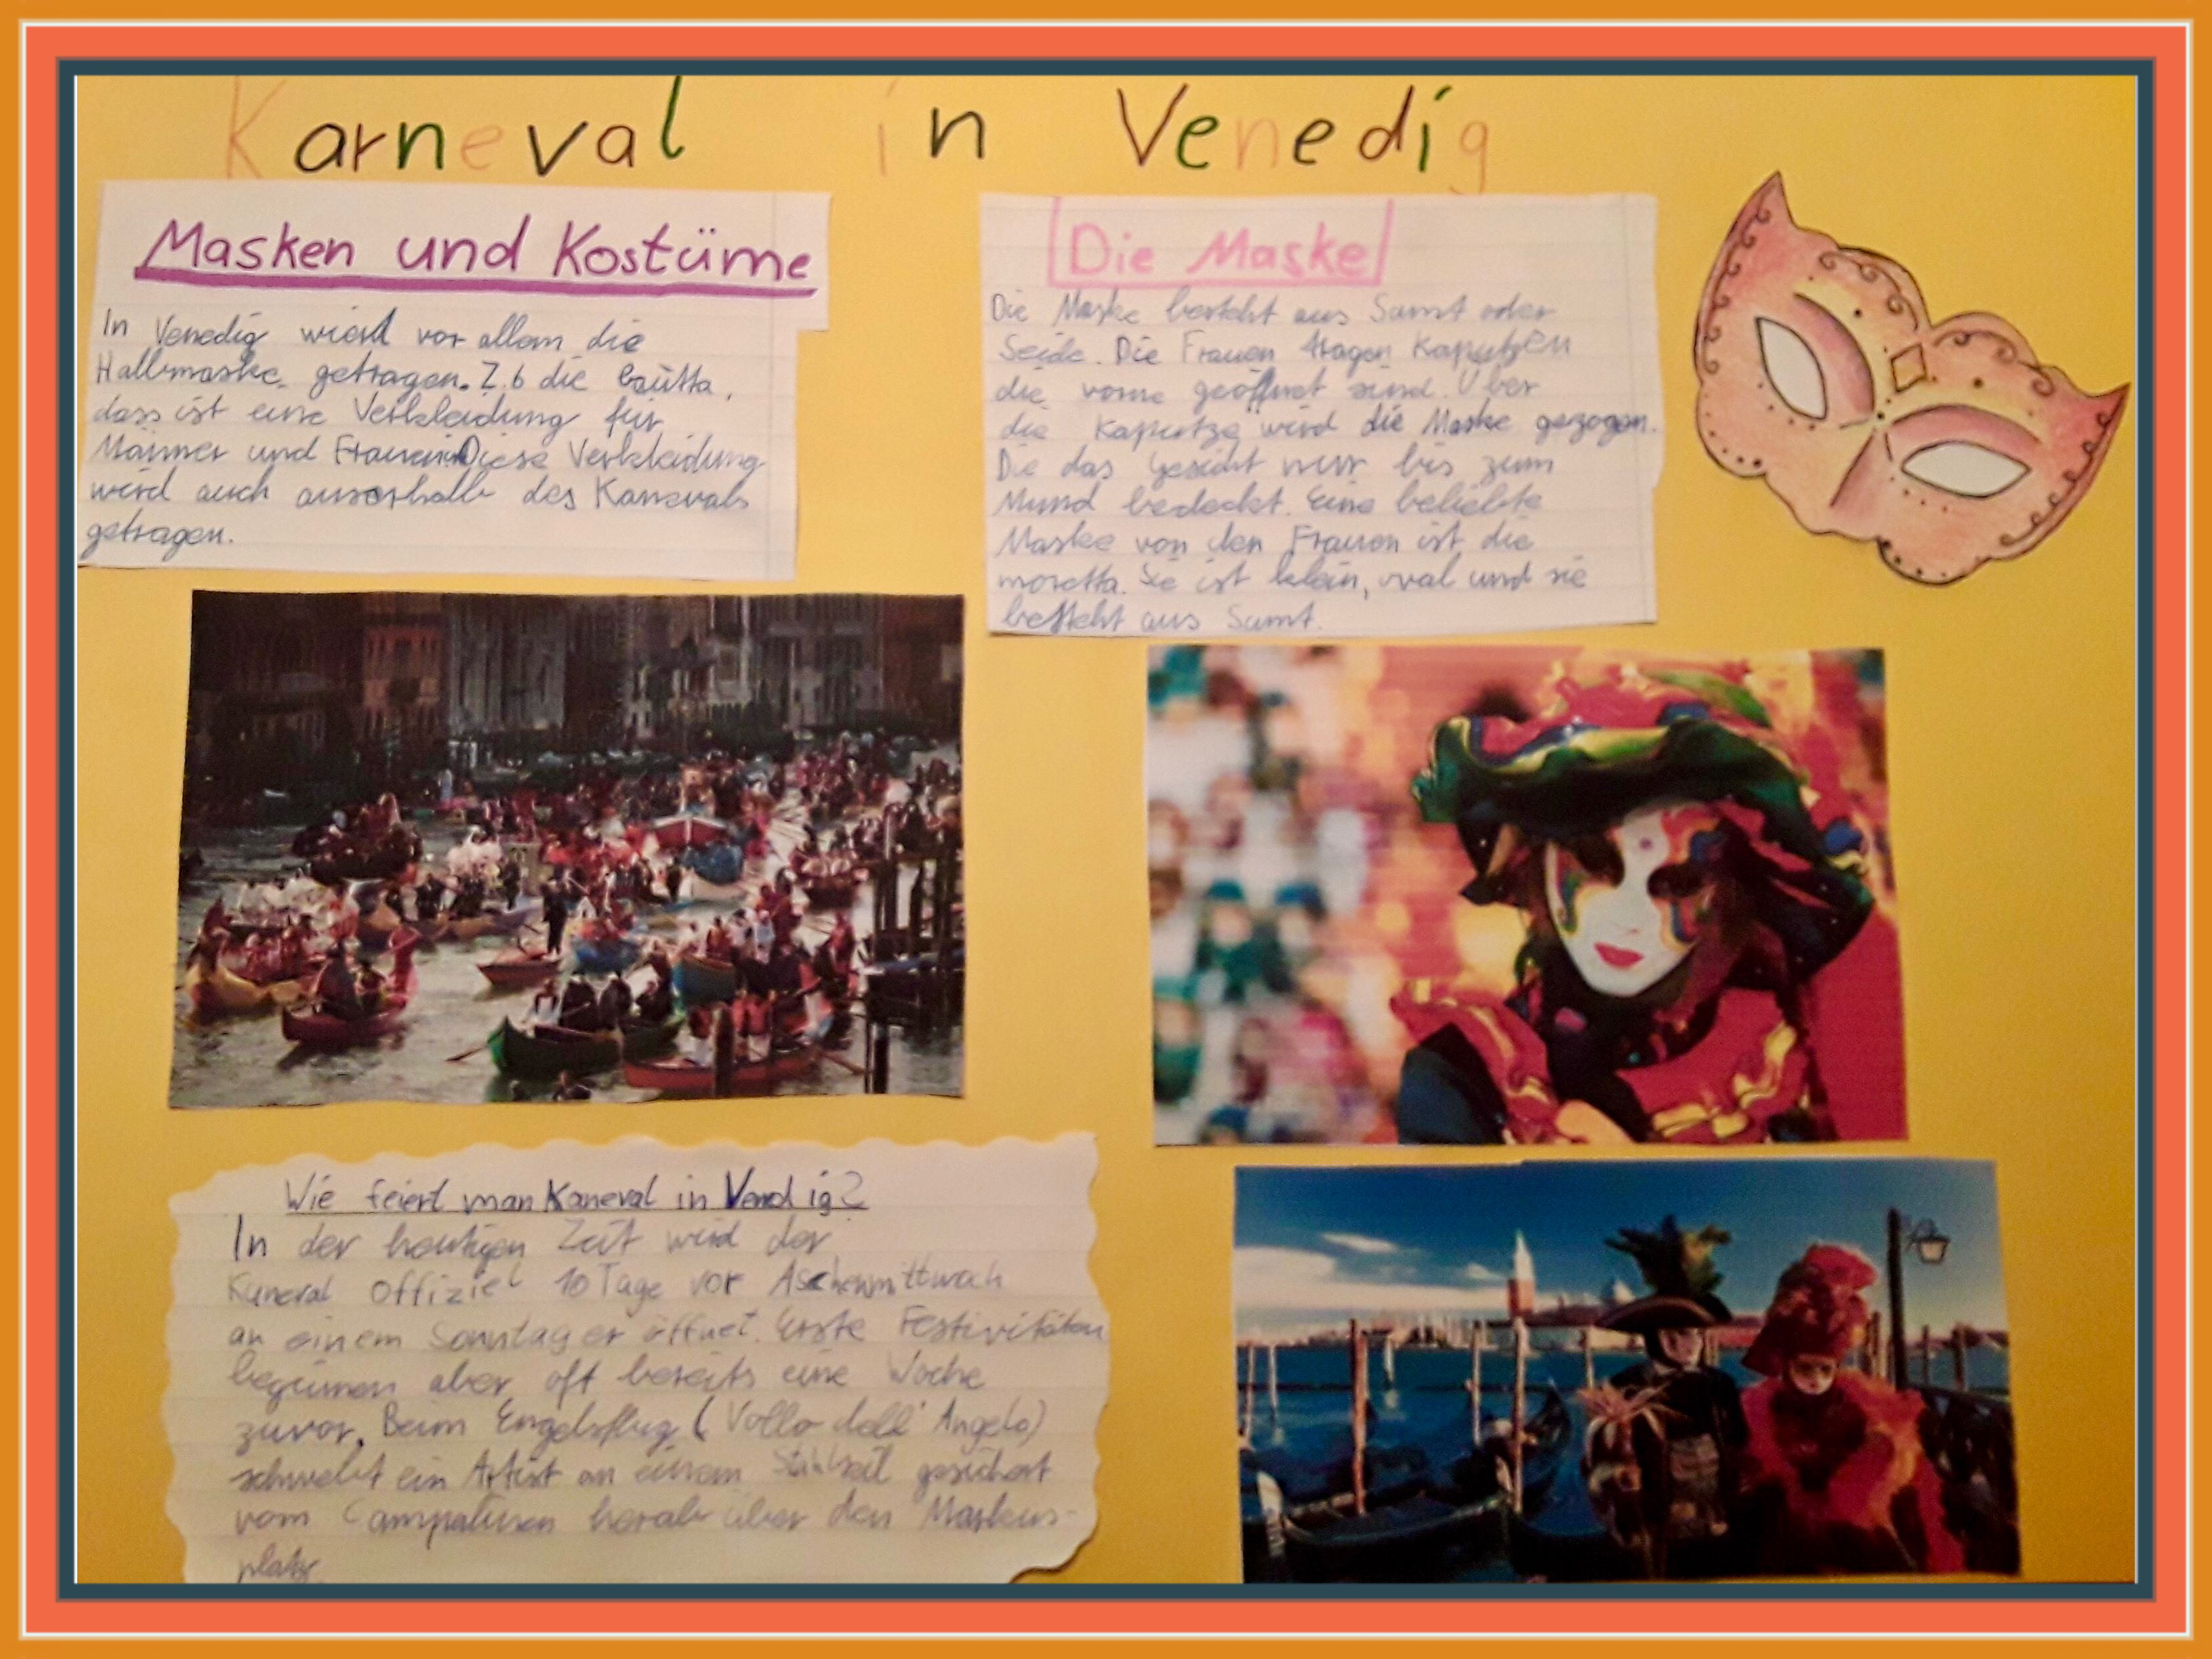 Karneval in Venedig
Masken und Kostüme
In Venedig wird vor allem die
Halbmaske getragen. Z.b die baùtta,
dass ist eine Verkleidung für
Männer und Frauen Diese Verkleidung
wird auch auserhalb des Karnevals
getragen.
Die Maske
Die Maske besteht aus Samt oder
Seide. Die Frauen tragen Kaputzen
die vorne geöffnet sind. Über
die Kaputze wird die Maske gezogen.
Die das Gesicht nur bis zum
Mund bedeckt. Eine beliebte
Maske von den Frauen ist die
moretta. Sie ist klein, oval und sie
besteht aus Samt.
Wie feiert man Kaneval in Vendig?
In der heutigen Zeit wird der
Kaneval Offiziel 10 Tage vor Aschermittwoch
an einem Sonntag er öffnet. Erste Festivitäten
beginnen aber oft bereits eine Woche
zuvor. Beim Engelsflug (Vollo dell' Angelo)
schwebt ein Artist an einem Stahlseil gesichert
vom Campanilen herab über den Markus-
platz